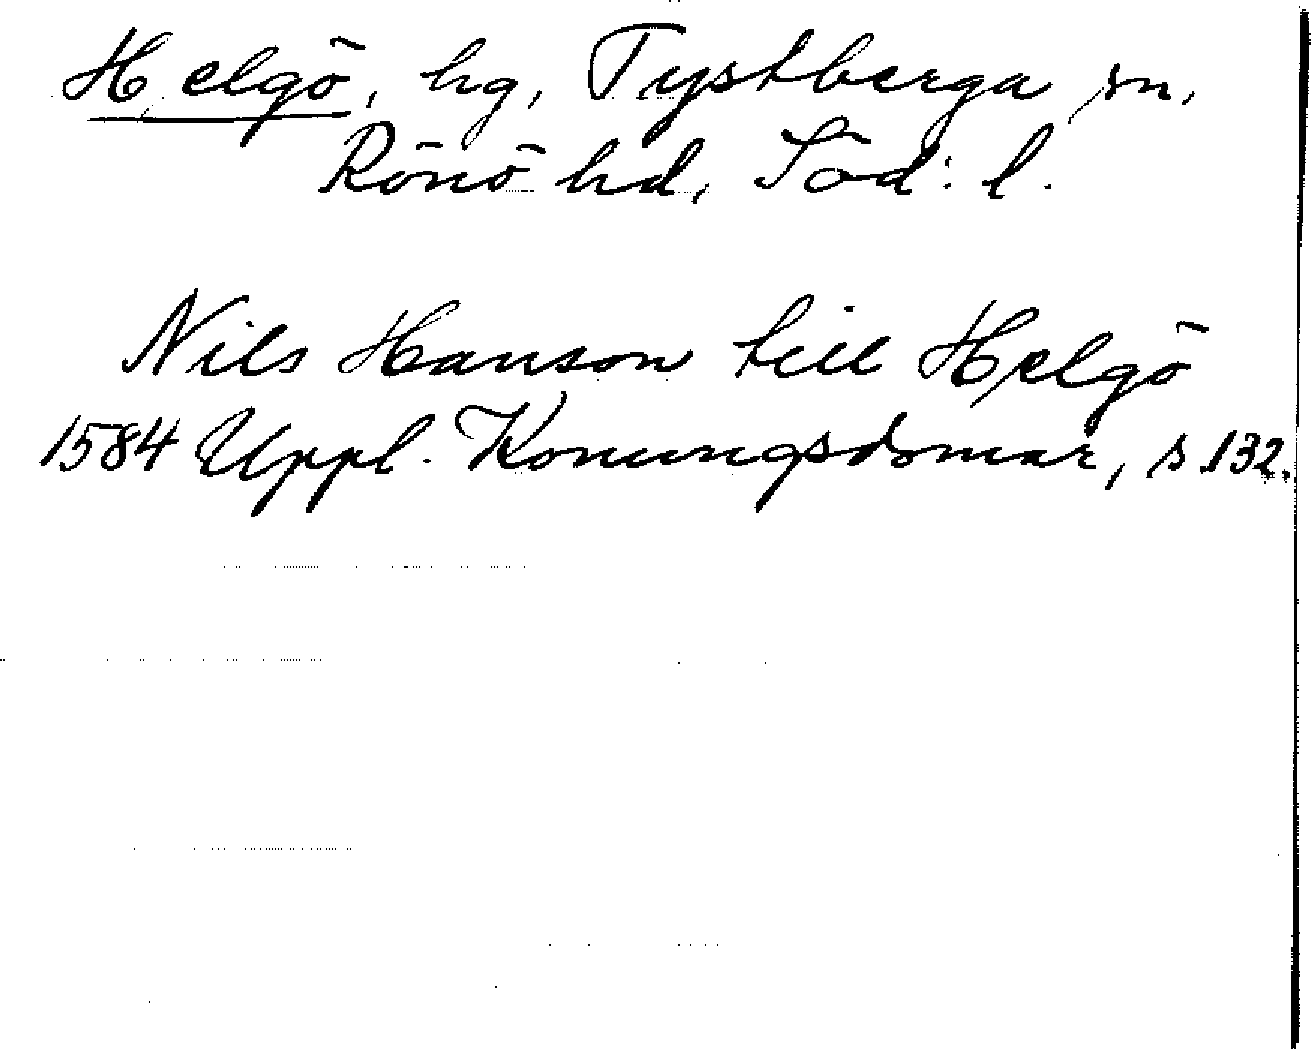 Helgö, hg, Tystberga sn,
Rönö hd, Söd: l.
Nils Hanson till Helgö
1584 Uppl. Konungsdomar, s 132.